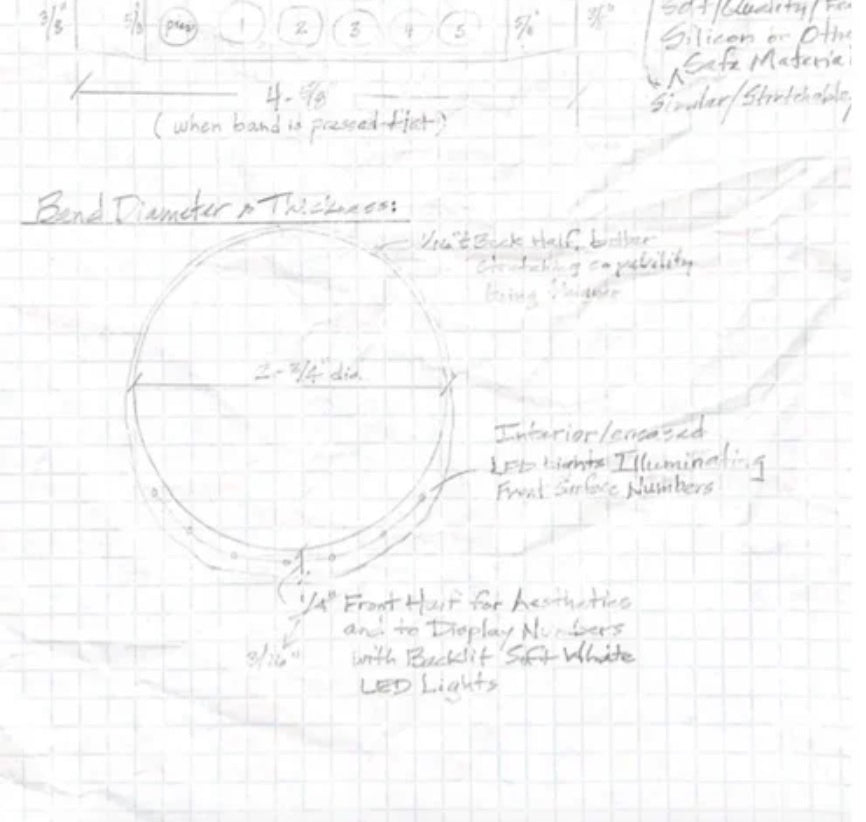 3/8" 5/8 prev 1 2 3 4 5 5/8" 3/8"
Soft/Quality/
Silicon or Othe
Safe Material
Similar/Stretchable,
4-5/8
(when band is pressed flat)
Band Diameter & Thickness:
1/16" t Back Half, better
stretching capability
being thinner
2-3/4" dia.
Interior/encased
LED Lights Illuminating
Front Surface Numbers
1/4" Front Half for Aesthetics
and to Display Numbers
3/16" with Backlit Soft White
LED Lights